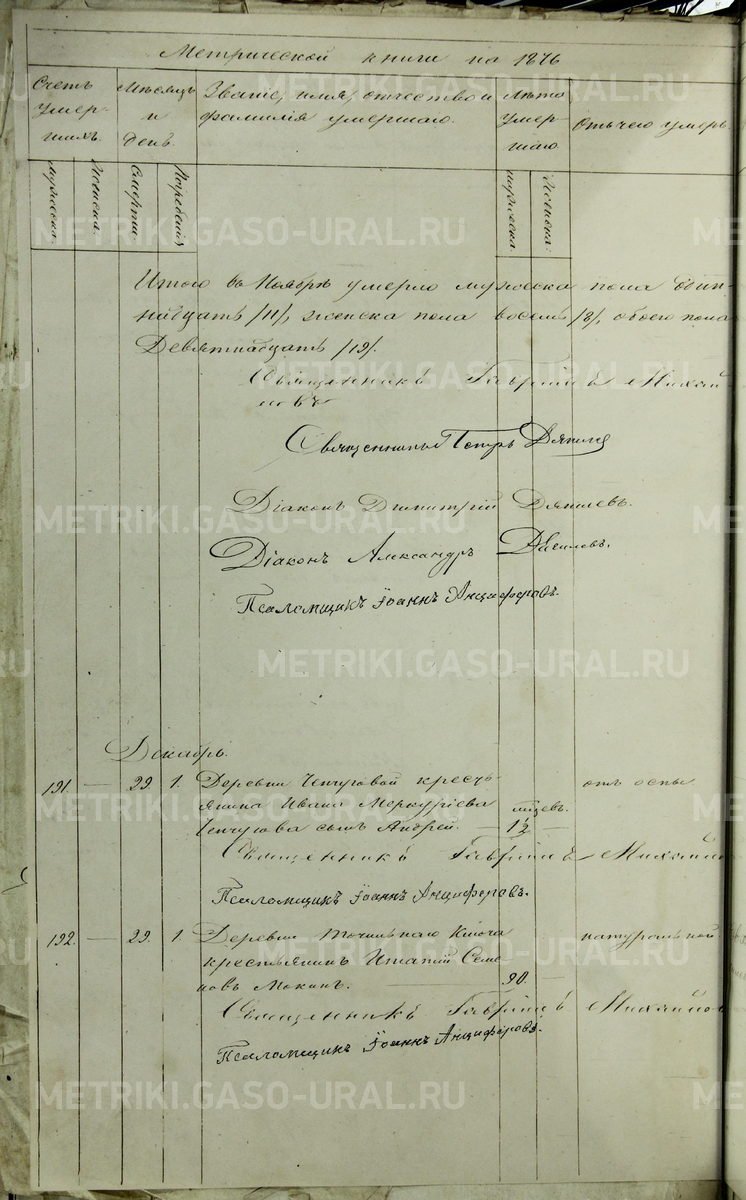 Метрической книги на 1876
Счетъ умер-шихъ.
Мѣсяцъ и день.
Званіе, имя, отчество и фамилія умершаго.
Лѣта умер-шаго
Отъ чего умеръ.
мужеска.
женска.
Смерти.
Погребенія
мужеска.
женска.
METRIKI.GASO-URAL.RU
Итого въ Ноябрѣ умерло мужеска пола один-
надцать /11/, женска пола восемь /8/, обоего пола
Девятнадцать /19/.
Священникъ Гавріилъ Михай-
ловъ
Священникъ Петръ
Діаконъ Димитрій
Діаконъ Александръ
Псаломщикъ Іоаннъ Анциферовъ.
Декабрь.
191. — 29. 1. Деревни Ченчуговой кресть-
янина Ивана Меркуріева мѣсяцевъ.
Ченчугова сынъ Андрей. 1½ —
отъ оспы
Священникъ Гавріилъ Михайловъ
Псаломщикъ Іоаннъ Анциферовъ.
192. — 29. 1. Деревни Точильнаго Ключа
крестьянинъ Ипатій Семе-
новъ Мокинъ. 90. —
натуральной.
Священникъ Гавріилъ Михайловъ
Псаломщикъ Іоаннъ Анциферовъ.